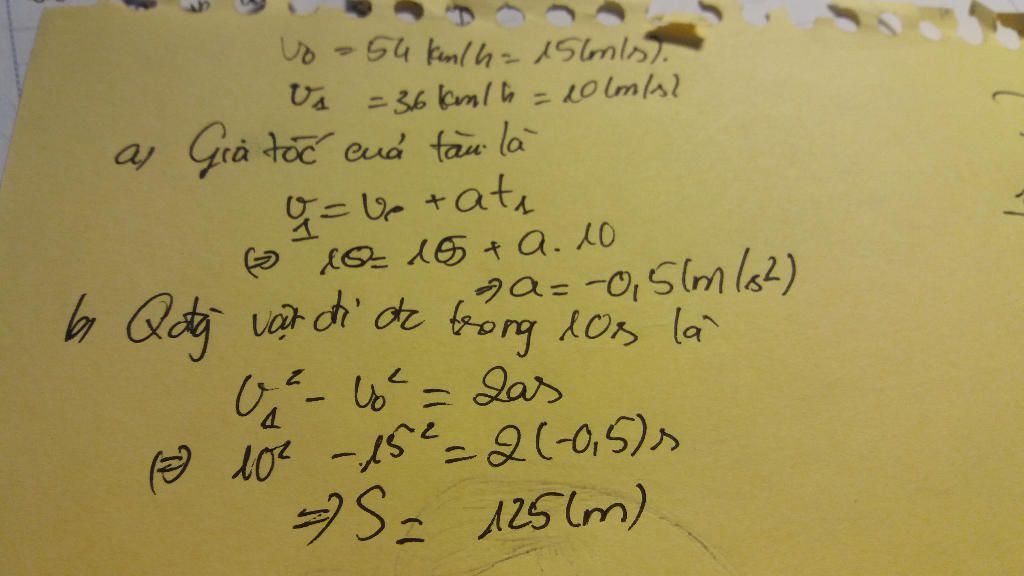 v₀ = 54 km/h = 15(m/s).
v₁ = 36 km/h = 10(m/s)
a) Gia tốc cuả tàu là
v₁ = v₀ + at₁
(⇒) 10 = 15 + a. 10
⇒ a = -0,5(m/s²)
b) Qđg vật đi đc trong 10s là
v₁² - v₀² = 2as
(⇒) 10² - 15² = 2(-0,5)s
⇒ S = 125(m)